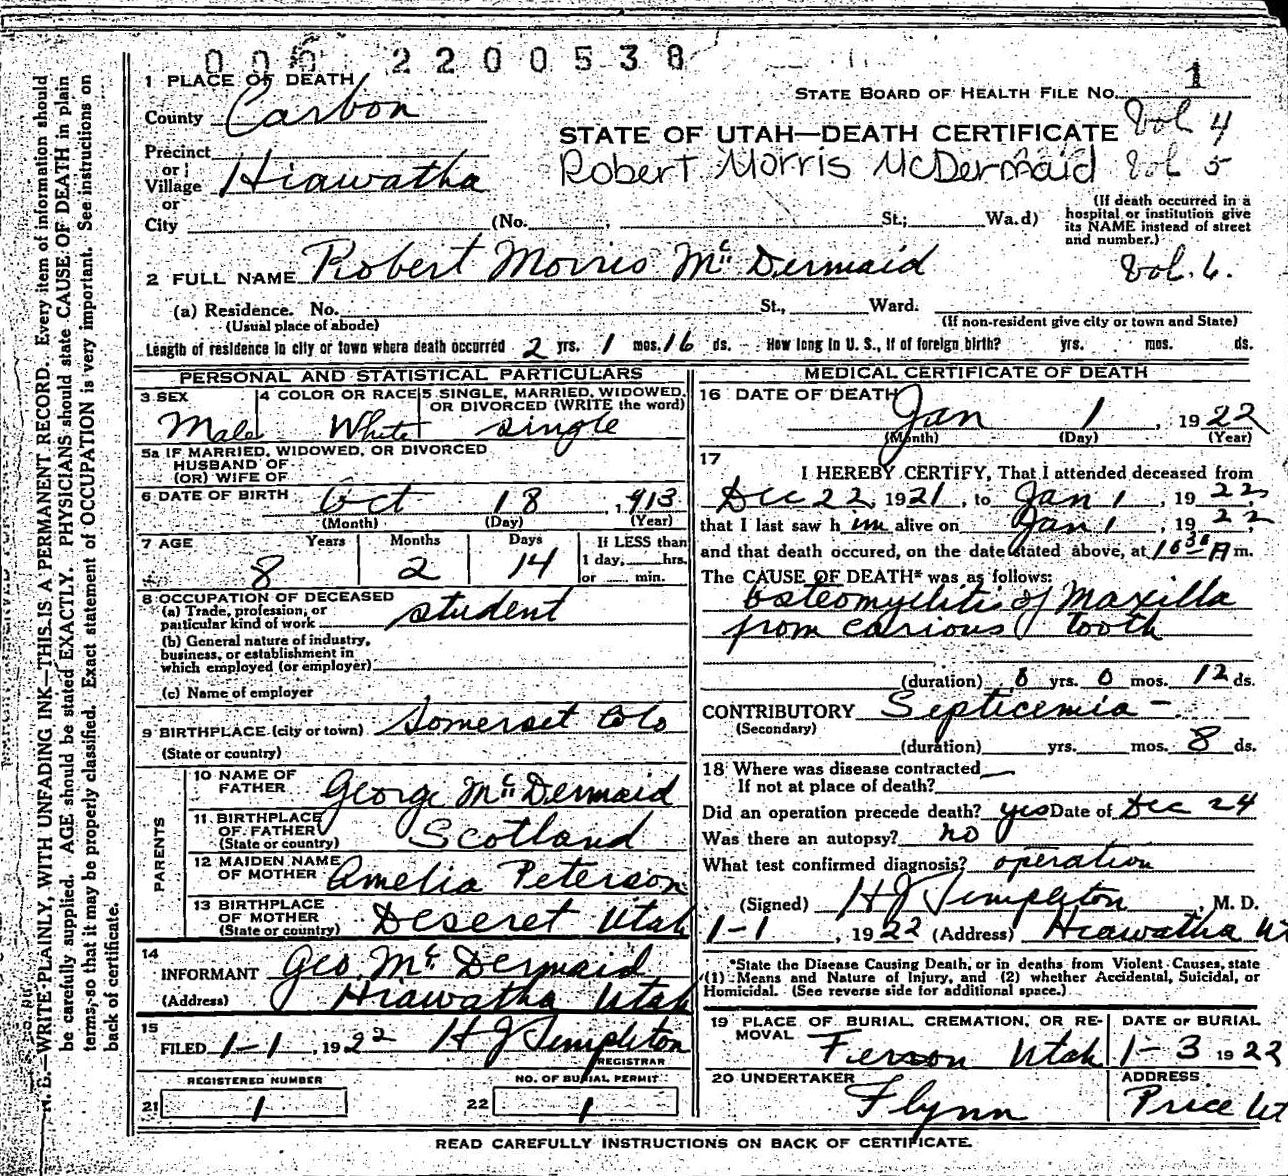 0 0 0 2 2 0 0 5 3 8
1 PLACE OF DEATH
County Carbon
STATE BOARD OF HEALTH FILE No. 1
STATE OF UTAH—DEATH CERTIFICATE Vol 4
Precinct
or
Village Hiawatha
Robert Morris McDermaid Vol 5
or
City (No. , St.; Wa.d)
(If death occurred in a
hospital or institution give
its NAME instead of street
and number.)
2 FULL NAME Robert Morris Mc Dermaid
Vol. 6.
(a) Residence. No. St., Ward.
(Usual place of abode) (If non-resident give city or town and State)
Length of residence in city or town where death occurred 2 yrs. 1 mos. 16 ds. How long in U. S., if of foreign birth? yrs. mos. ds.
PERSONAL AND STATISTICAL PARTICULARS
3 SEX Male
4 COLOR OR RACE White
5 SINGLE, MARRIED, WIDOWED,
OR DIVORCED (WRITE the word)
single
5a IF MARRIED, WIDOWED, OR DIVORCED
HUSBAND OF
(OR) WIFE OF
6 DATE OF BIRTH Oct 18, 1913
(Month) (Day) (Year)
7 AGE Years Months Days If LESS than
1 day, hrs.
or min.
8 2 14
8 OCCUPATION OF DECEASED
(a) Trade, profession, or
particular kind of work student
(b) General nature of industry,
business, or establishment in
which employed (or employer)
(c) Name of employer
9 BIRTHPLACE (city or town) Somerset Colo
(State or country)
PARENTS
10 NAME OF
FATHER George Mc Dermaid
11 BIRTHPLACE
OF FATHER
(State or country) Scotland
12 MAIDEN NAME
OF MOTHER Amelia Peterson
13 BIRTHPLACE
OF MOTHER
(State or country) Deseret Utah
14
INFORMANT Geo. Mc Dermaid
(Address) Hiawatha Utah
15
FILED 1-1, 1922 H J Templeton
REGISTRAR
REGISTERED NUMBER NO. OF BURIAL PERMIT
21 1 22 1
MEDICAL CERTIFICATE OF DEATH
16 DATE OF DEATH
Jan 1, 1922
(Month) (Day) (Year)
17
I HEREBY CERTIFY, That I attended deceased from
Dec 22, 1921, to Jan 1, 1922
that I last saw h im alive on Jan 1, 1922
and that death occured, on the date stated above, at 10 30 A m.
The CAUSE OF DEATH* was as follows:
Osteomyelitis of Maxilla
from carious tooth
(duration) 0 yrs. 0 mos. 12 ds.
CONTRIBUTORY Septicemia -
(Secondary)
(duration) yrs. mos. 8 ds.
18 Where was disease contracted
If not at place of death?
Did an operation precede death? yes Date of Dec 24
Was there an autopsy? no
What test confirmed diagnosis? operation
(Signed) H J Templeton, M. D.
1-1, 1922 (Address) Hiawatha Ut
*State the Disease Causing Death, or in deaths from Violent Causes, state
(1) Means and Nature of Injury, and (2) whether Accidental, Suicidal, or
Homicidal. (See reverse side for additional space.)
19 PLACE OF BURIAL, CREMATION, OR RE-
MOVAL Ferron Utah
DATE OF BURIAL
1-3 1922
20 UNDERTAKER
Flynn
ADDRESS
Price Ut
READ CAREFULLY INSTRUCTIONS ON BACK OF CERTIFICATE.
N. B.—WRITE PLAINLY, WITH UNFADING INK—THIS IS A PERMANENT RECORD. Every item of information should
be carefully supplied. AGE should be stated EXACTLY. PHYSICIANS should state CAUSE OF DEATH in plain
terms, so that it may be properly classified. Exact statement of OCCUPATION is very important. See instructions on
back of certificate.